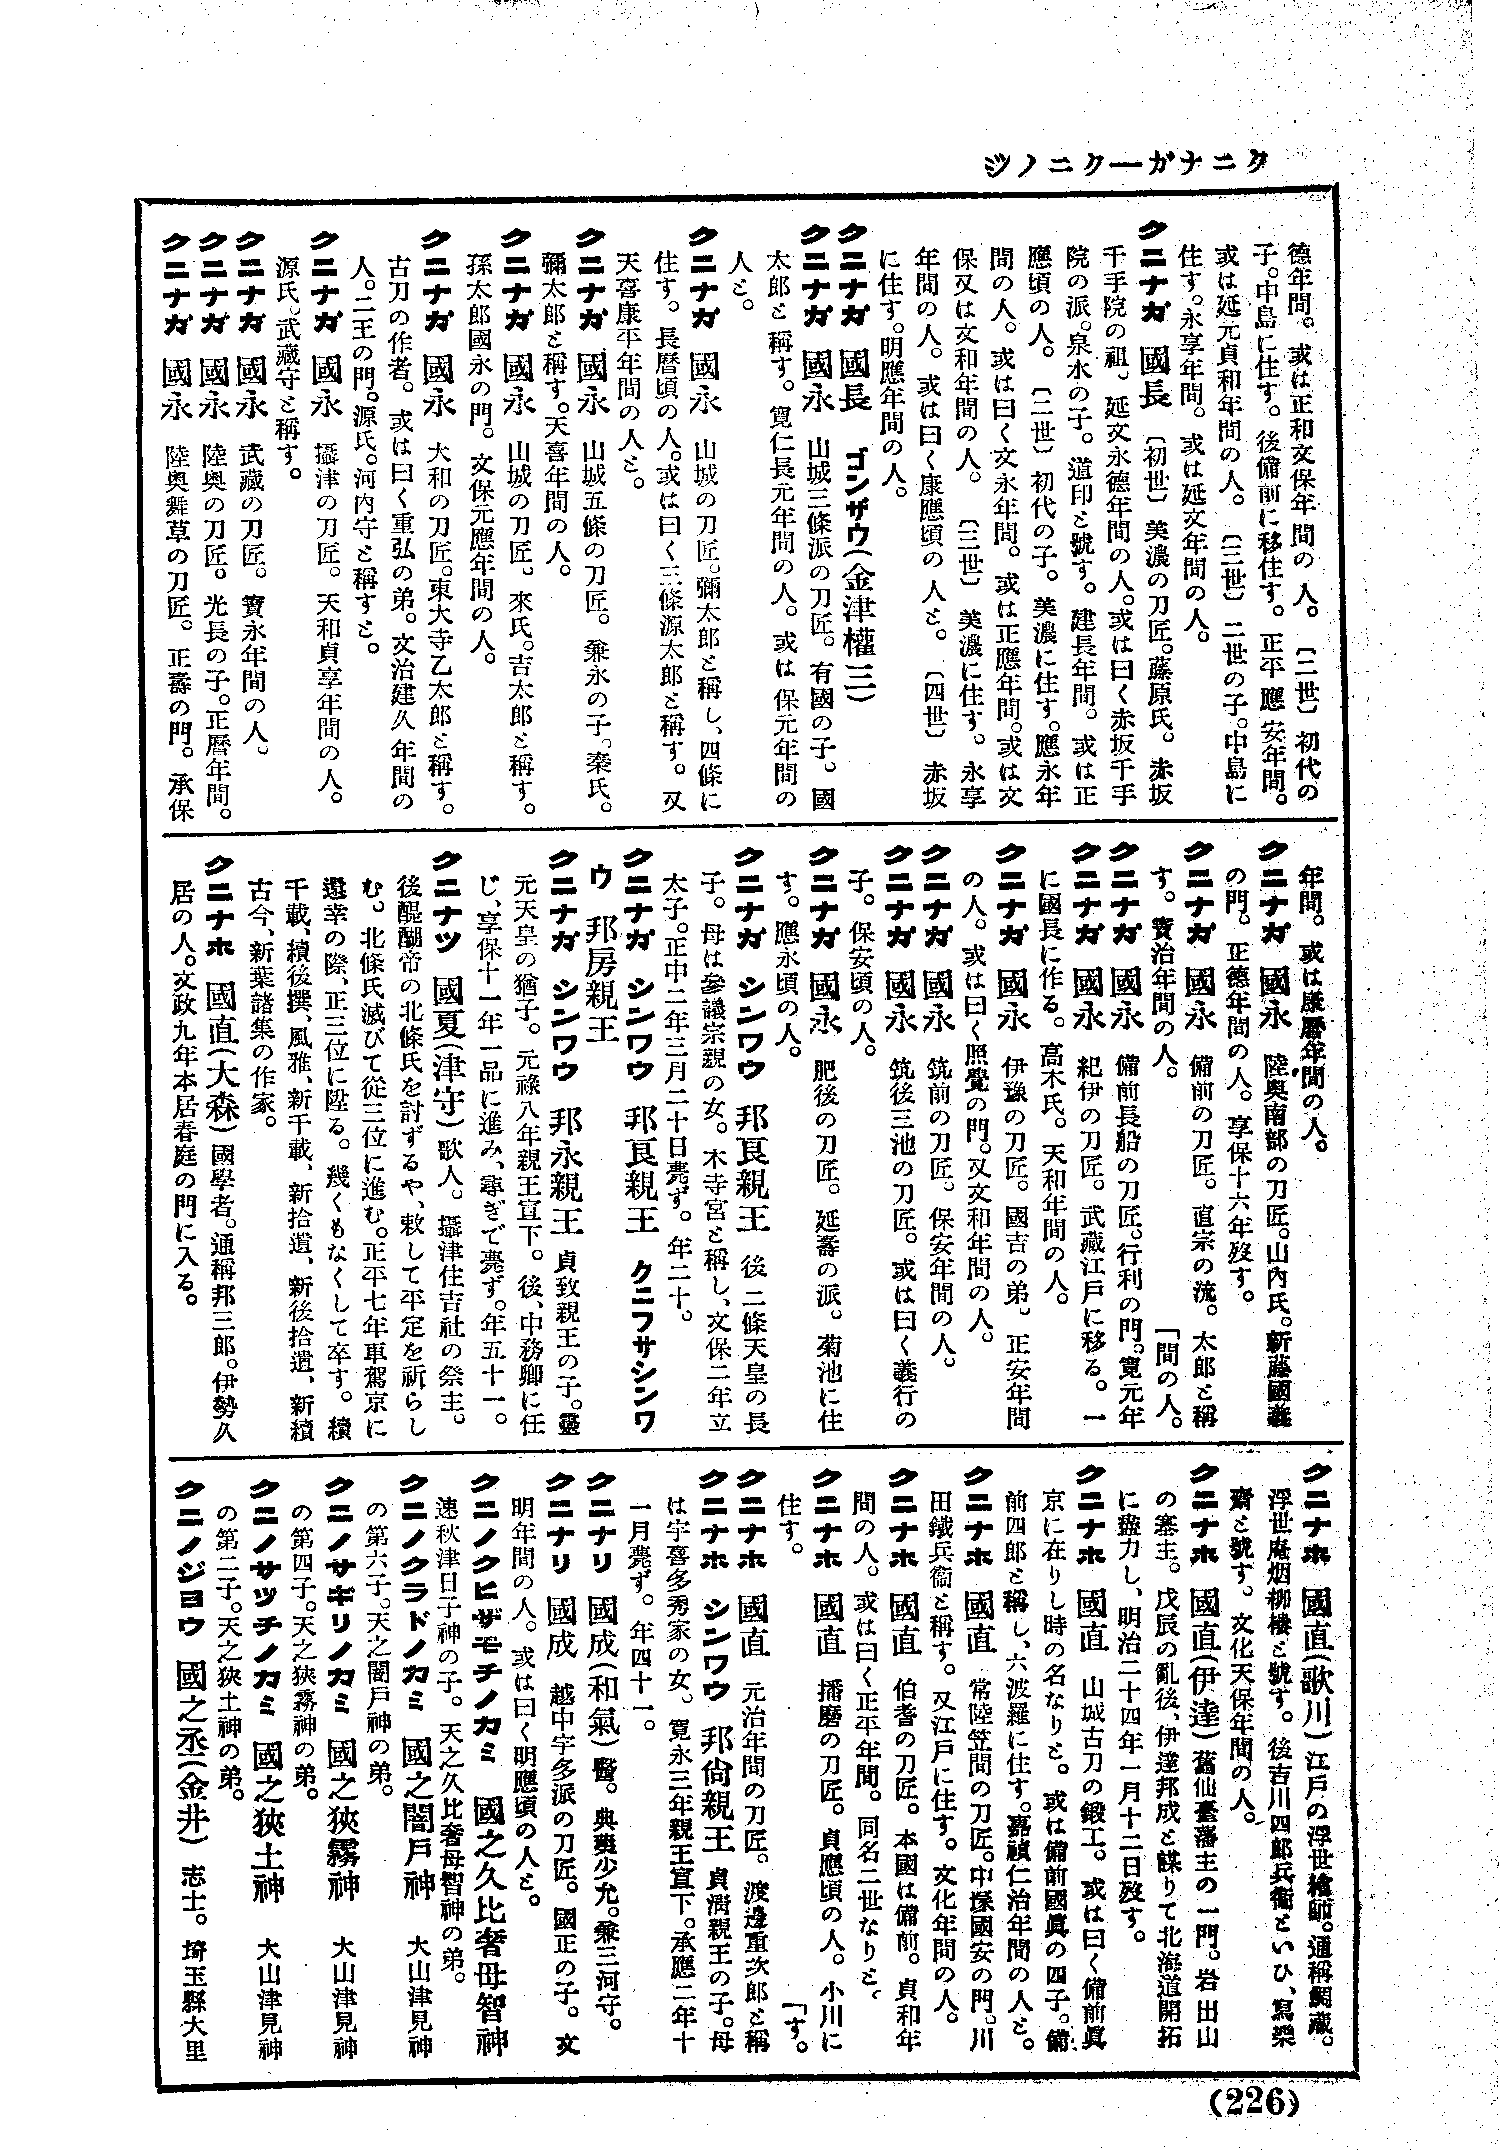 クニナガ―クニノジ
德年間。或は正和文保年間の人。〔二世〕初代の
子。中島に住す。後備前に移住す。正平應安年間。
或は延元貞和年間の人。〔三世〕二世の子。中島に
住す。永享年間。或は延文年間の人。
クニナガ 國長 〔初世〕美濃の刀匠。藤原氏。赤坂
千手院の祖。延文永德年間の人。或は曰く赤坂千手
院の派。泉水の子。道印と號す。建長年間。或は正
應頃の人。〔二世〕初代の子。美濃に住す。應永年
間の人。或は曰く文永年間。或は正應年間。或は文
保又は文和年間の人。〔三世〕美濃に住す。永享
年間の人。或は曰く康應頃の人と。〔四世〕赤坂
に住す。明應年間の人。
クニナガ 國長 ゴンザウ(金津權三)
クニナガ 國永 山城三條派の刀匠。有國の子。國
太郎と稱す。寬仁長元年間の人。或は保元年間の
人と。
クニナガ 國永 山城の刀匠。彌太郎と稱し、四條に
住す。長曆頃の人。或は曰く三條源太郎と稱す。又
天喜康平年間の人と。
クニナガ 國永 山城五條の刀匠。兼永の子。秦氏。
彌太郎と稱す。天喜年間の人。
クニナガ 國永 山城の刀匠。來氏。吉太郎と稱す。
孫太郎國永の門。文保元應年間の人。
クニナガ 國永 大和の刀匠。東大寺乙太郎と稱す。
古刀の作者。或は曰く重弘の弟。文治建久年間の
人。二王の門。源氏。河內守と稱すと。
クニナガ 國永 攝津の刀匠。天和貞享年間の人。
源氏。武藏守と稱す。
クニナガ 國永 武藏の刀匠。寶永年間の人。
クニナガ 國永 陸奥の刀匠。光長の子。正曆年間。
クニナガ 國永 陸奥舞草の刀匠。正壽の門。承保
年間。或は康曆年間の人。
クニナガ 國永 陸奥南部の刀匠。山內氏。新藤國義
の門。正德年間の人。享保十六年歿す。
クニナガ 國永 備前の刀匠。直宗の流。太郎と稱
す。寶治年間の人。 「間の人。
クニナガ 國永 備前長船の刀匠。行利の門。寬元年
クニナガ 國永 紀伊の刀匠。武藏江戸に移る。一
に國長に作る。高木氏。天和年間の人。
クニナガ 國永 伊豫の刀匠。國吉の弟。正安年間
の人。或は曰く照覺の門。又文和年間の人。
クニナガ 國永 筑前の刀匠。保安年間の人。
クニナガ 國永 筑後三池の刀匠。或は曰く義行の
子。保安頃の人。
クニナガ 國永 肥後の刀匠。延壽の派。菊池に住
す。應永頃の人。
クニナガ シンワウ 邦良親王 後二條天皇の長
子。母は參議宗親の女。木寺宮と稱し、文保二年立
太子。正中二年三月二十日薨ず。年二十。
クニナガ シンワウ 邦良親王 クニフサシンワ
ウ 邦房親王
クニナガ シンワウ 邦永親王 貞致親王の子。靈
元天皇の猶子。元祿八年親王宣下。後、中務卿に任
じ、享保十一年一品に進み、尋ぎで薨ず。年五十一。
クニナツ 國夏(津守) 歌人。攝津住吉社の祭主。
後醍醐帝の北條氏を討ずるや、敕して平定を祈らし
む。北條氏滅びて從三位に進む。正平七年車駕京に
還幸の際、正三位に陞る。幾くもなくして卒す。續
千載、續後撰、風雅、新千載、新拾遺、新後拾遺、新續
古今、新葉諸集の作家。
クニナホ 國直(大森) 國學者。通稱邦三郎。伊勢久
居の人。文政九年本居春庭の門に入る。
クニナホ 國直(歌川) 江戸の浮世繪師。通稱鯛藏。
浮世庵烟柳樓と號す。後吉川四郎兵衞といひ、寫樂
齋と號す。文化天保年間の人。
クニナホ 國直(伊達) 舊仙臺藩主の一門。岩出山
の塞主。戊辰の亂後、伊達邦成と謀りて北海道開拓
に盡力し、明治二十四年一月十二日歿す。
クニナホ 國直 山城古刀の鍛工。或は曰く備前眞
京に在りし時の名なりと。或は備前國眞の四子。備
前四郎と稱し、六波羅に住す。嘉禎仁治年間の人と。
クニナホ 國直 常陸笠間の刀匠。中塚國安の門。川
田鐵兵衞と稱す。又江戸に住す。文化年間の人。
クニナホ 國直 伯耆の刀匠。本國は備前。貞和年
間の人。或は曰く正平年間。同名二世なりと。
クニナホ 國直 播磨の刀匠。貞應頃の人。小川に
住す。 「す。
クニナホ 國直 元治年間の刀匠。渡邊重次郎と稱
クニナホ シンワウ 邦尙親王 貞淸親王の子。母
は宇喜多秀家の女。寬永三年親王宣下。承應二年十
一月薨ず。年四十一。
クニナリ 國成(和氣) 醫。典藥少允。兼三河守。
クニナリ 國成 越中宇多派の刀匠。國正の子。文
明年間の人。或は曰く明應頃の人と。
クニノクヒザモチノカミ 國之久比奢母智神
速秋津日子神の子。天之久比奢母智神の弟。
クニノクラドノカミ 國之闇戸神 大山津見神
の第六子。天之闇戸神の弟。
クニノサギリノカミ 國之狹霧神 大山津見神
の第四子。天之狹霧神の弟。
クニノサツチノカミ 國之狹土神 大山津見神
の第二子。天之狹土神の弟。
クニノジヨウ 國之丞(金井) 志士。埼玉縣大里
(226)